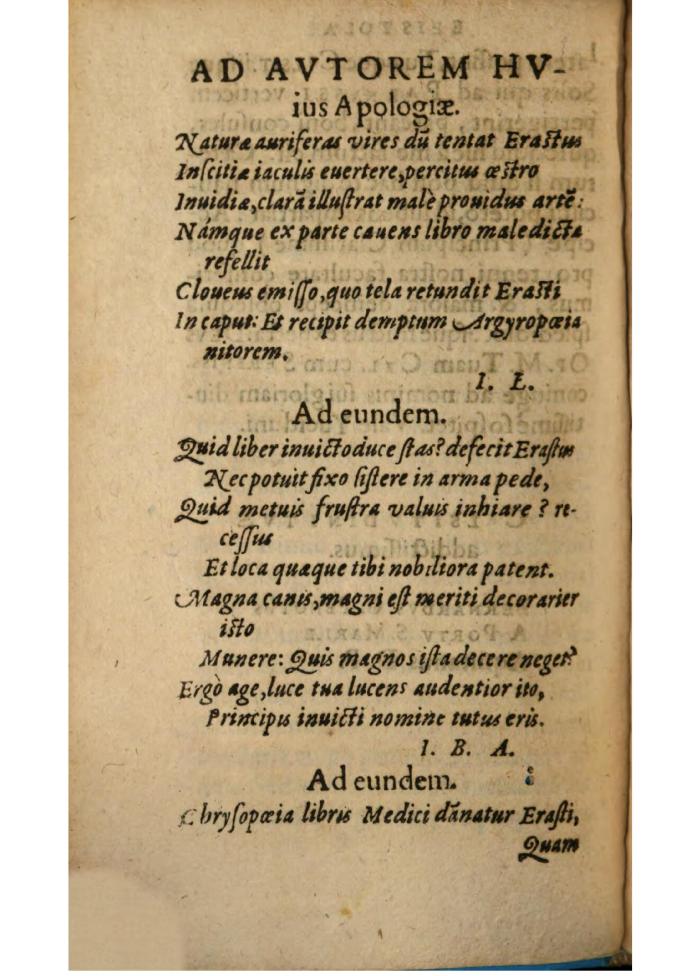 AD AVTOREM HV-
ius Apologiæ.
Naturæ auriferas vires dū tentat Erastus
Inſcitiæ iaculis euertere, percitus œstro
Inuidiæ, clarā illuſtrat malè prouidus artē:
Námque ex parte cauens libro maledicta
refellit
Cloueus emiſſo, quo tela retundit Erasti
In caput: Et recipit demptum Argyropœia
nitorem.
I. L.
Ad eundem.
Quid liber inuicto duce ſtas? defecit Eraſtus
Nec potuit fixo ſiſtere in arma pede,
Quid metuis fruſtra valuis inhiare? re-
ceſſus
Et loca quæque tibi nobiliora patent.
Magna canis, magni eſt meriti decorarier
isto
Munere: Quis magnos iſta decere neget?
Ergò age, luce tua lucens audentior ito,
Principis inuicti nomine tutus eris.
I. B. A.
Ad eundem.
Chryſopœia libris Medici dānatur Eraſti,
Quam